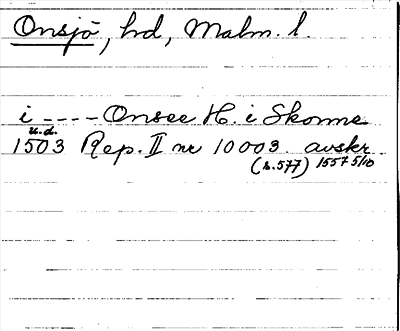 Onsjö, hd, Malm. l.
i ---- Onsee H. i Skonne
u.d.
1503 Rep. II nr 10003. avskr.
(s. 577) 1557 5/10